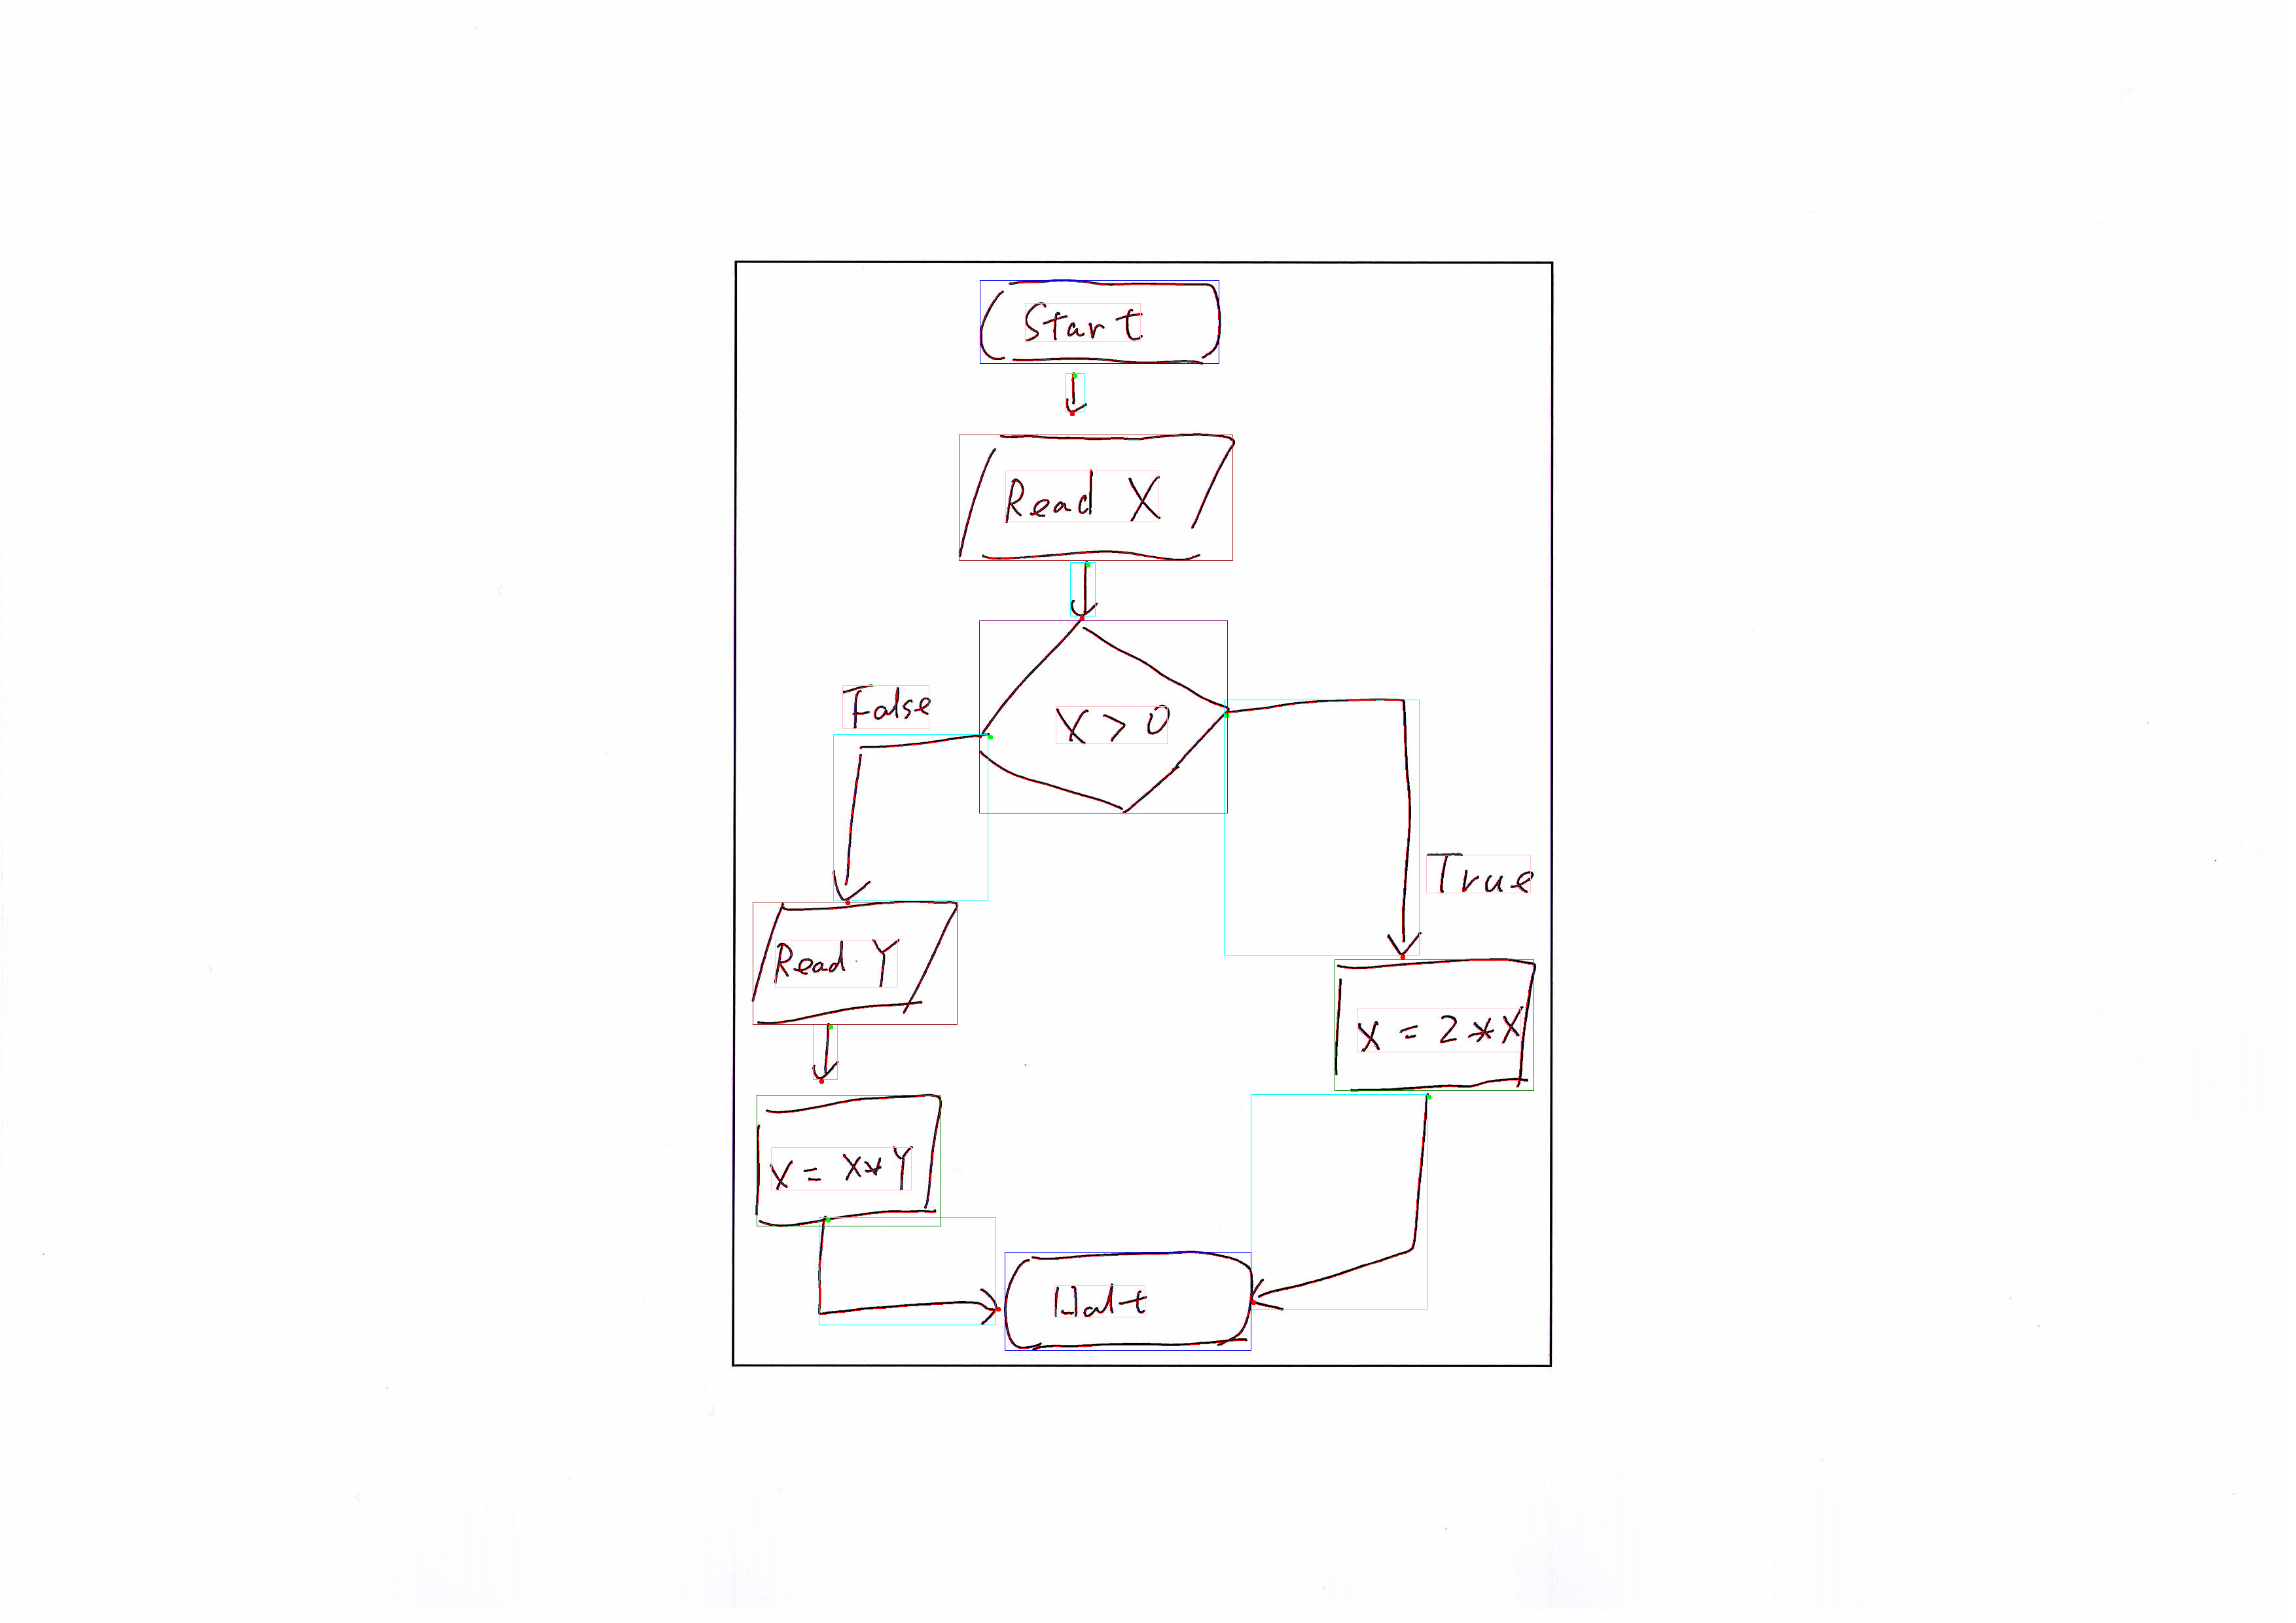 Start
Read X
X > 0
False
True
Read Y
X = 2 * X
X = X * Y
Halt